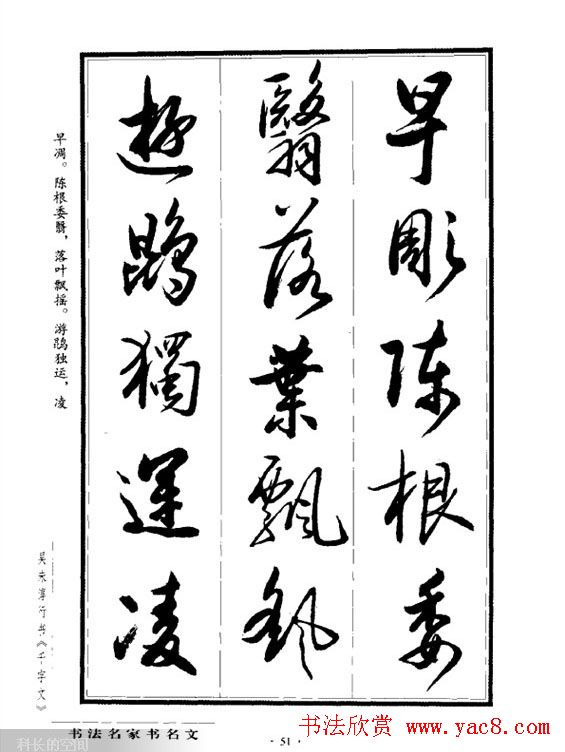 早彫陳根委
翳落葉飄颻
遊鵾獨運凌
早凋。陈根委翳，落叶飘摇。游鹍独运，凌
吴未淳行书《千字文》
书法名家书名文
· 51 ·
科长的空间
书法欣赏 www.yac8.com